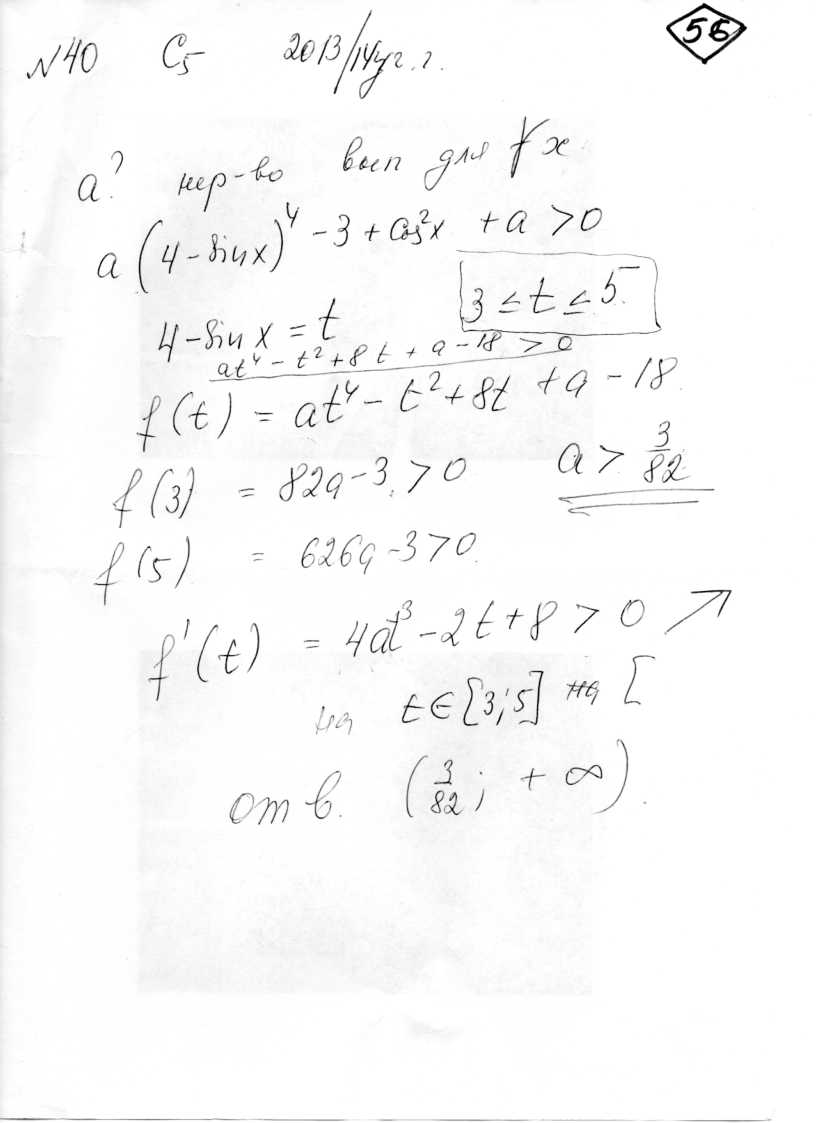 №40 C5 2013/14уч.г. 56
a? нер-во вып для ∀x
a(4-sinx)⁴ - 3 + cos²x + a > 0
4-sinx = t 3 ≤ t ≤ 5
at⁴ - t² + 8t + a - 18 > 0
f(t) = at⁴ - t² + 8t + a - 18
f(3) = 82a - 3 > 0 a > 3/82
f(5) = 626a - 3 > 0
f'(t) = 4at³ - 2t + 8 > 0 ↗
на t ∈ [3; 5] на [
отв. (3/82; +∞).